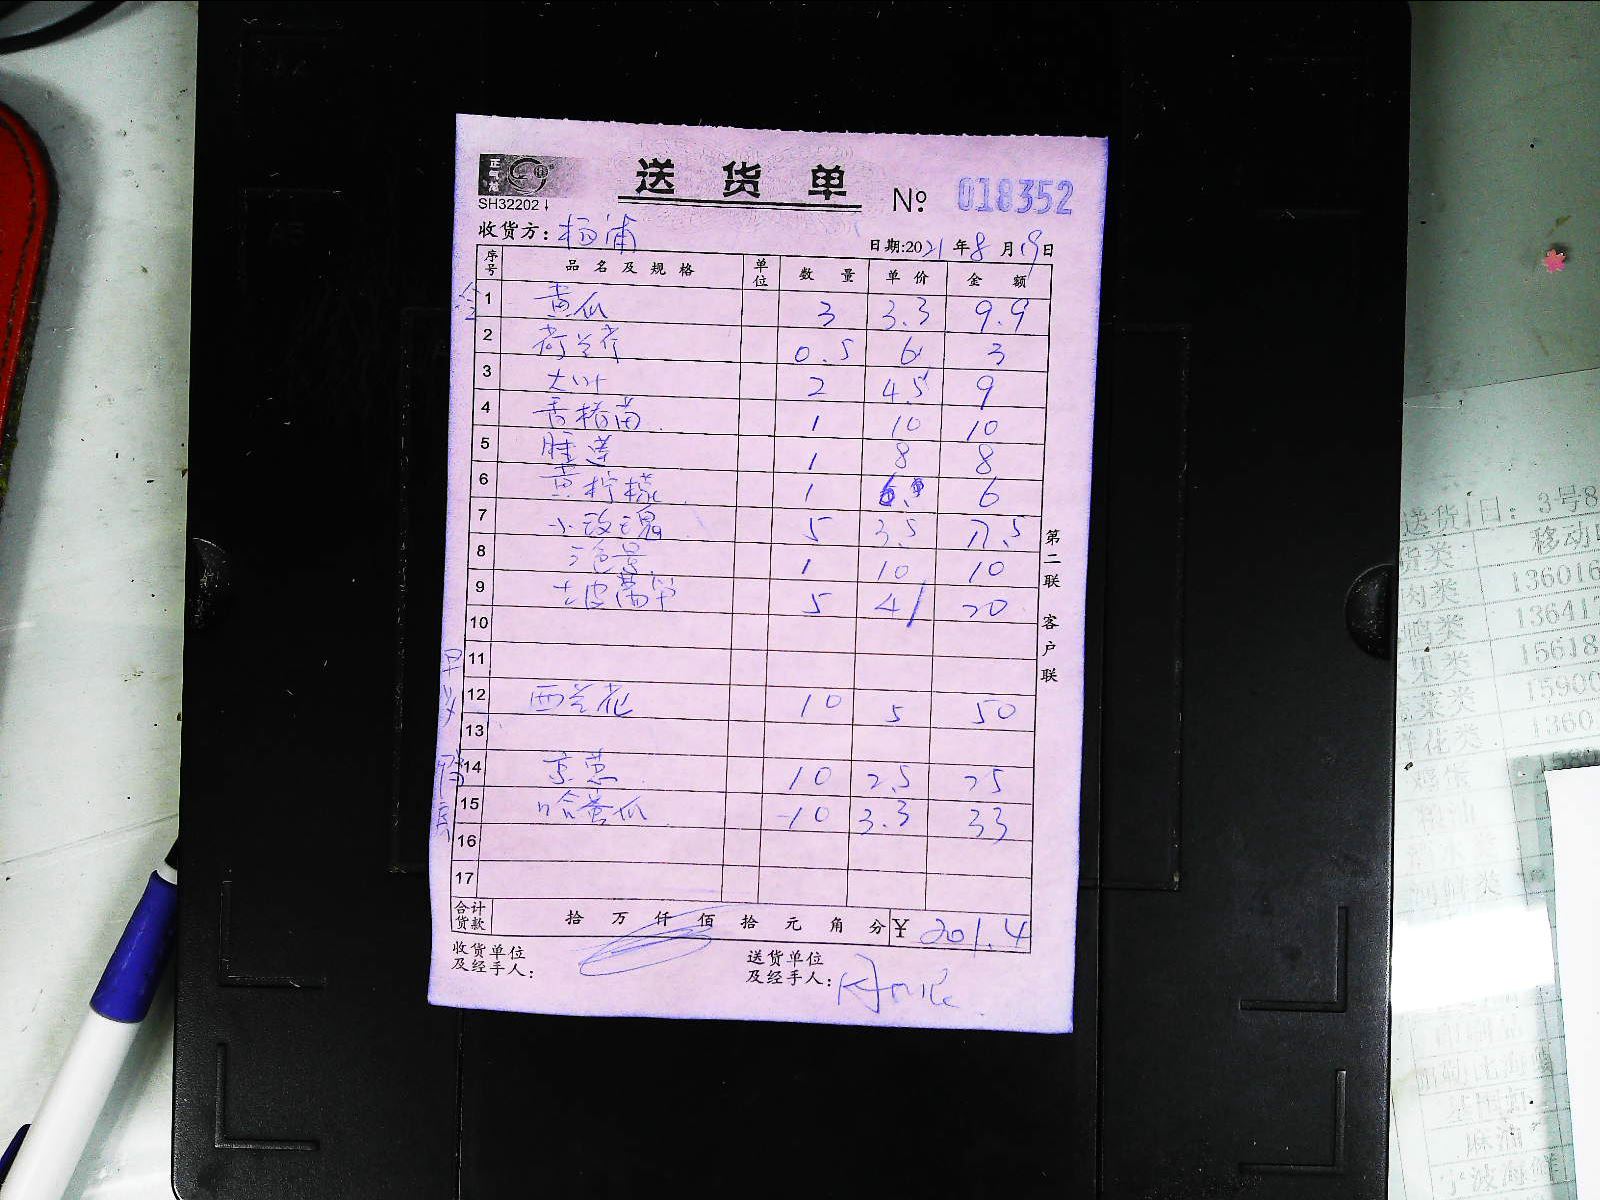 正气龙
SH32202
送货单 No 018352
收货方：杨浦
日期:2021年8月19日
序号 品名及规格 单位 数量 单价 金额
冷
1 黄瓜 3 3.3 9.9
2 荷兰芹 0.5 6 3
3 大叶 2 4.5 9
4 香椿苗 1 10 10
5 睡莲 1 8 8
6 黄柠檬 1 6 6
7 小玫瑰 5 3.5 17.5
8 三色堇 1 10 10
9 大皮萝卜 5 4 20
10
11
12 西兰花 10 5 50
13
14 京葱 10 2.5 25
15 哈蜜瓜 10 3.3 33
16
17
合计货款 拾 万 仟 佰 拾 元 角 分 ¥ 201.4
收货单位及经手人：
送货单位及经手人：
第二联 客户联
送货 日：3号8
货类 移动
肉类 136016
鸭类 136417
果类 15618
菜类 15900
花类 1360